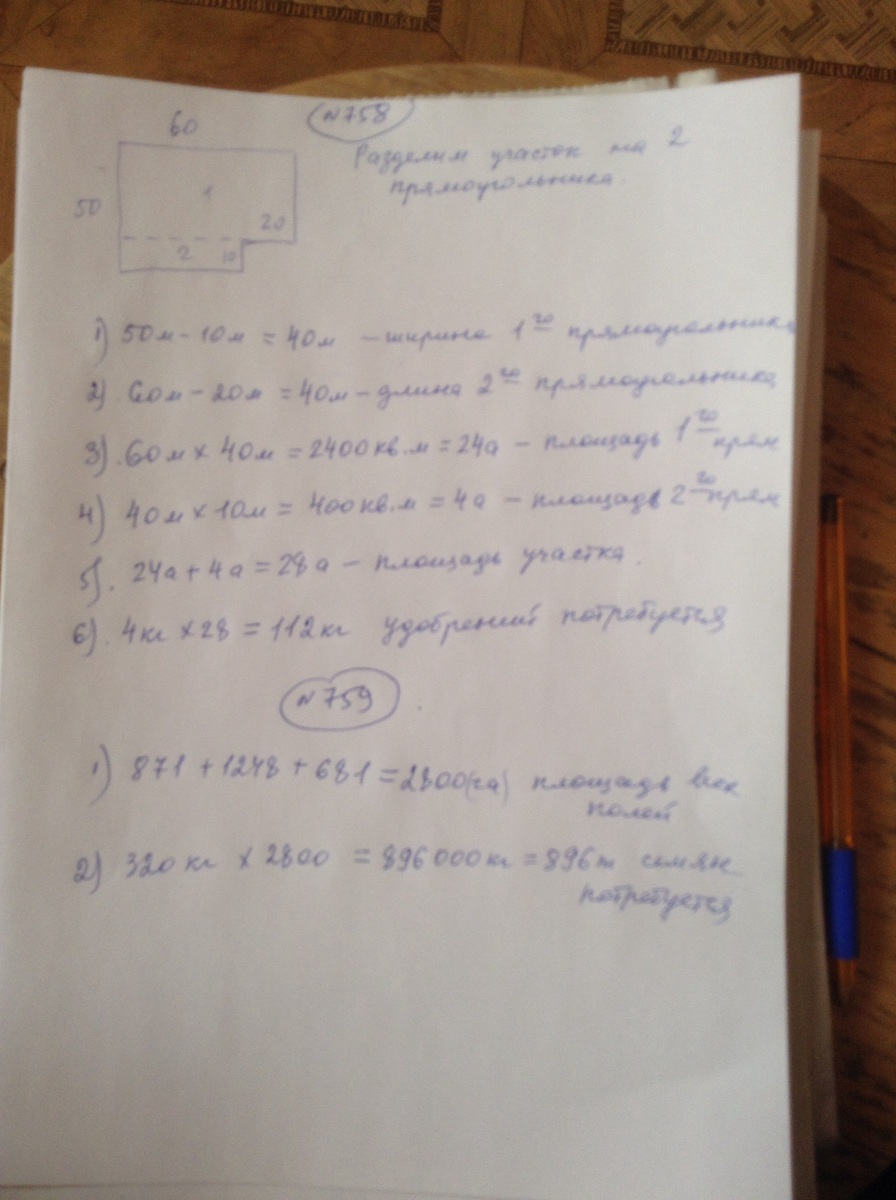 60
№758
Разделим участок на 2
прямоугольника.
50
1
20
2
10
1) 50м - 10м = 40м - ширина 1го прямоугольника
2) 60м - 20м = 40м - длина 2го прямоугольника
3). 60м x 40м = 2400кв.м = 24а - площадь 1го прям
4) 40м x 10м = 400кв.м = 4а - площадь 2го прям
5). 24а + 4а = 28а - площадь участка.
6). 4кг x 28 = 112кг удобрений потребуется
№759
1) 871 + 1248 + 681 = 2800(га) площадь всех
полей
2) 320кг x 2800 = 896000кг = 896т семян
потребуется